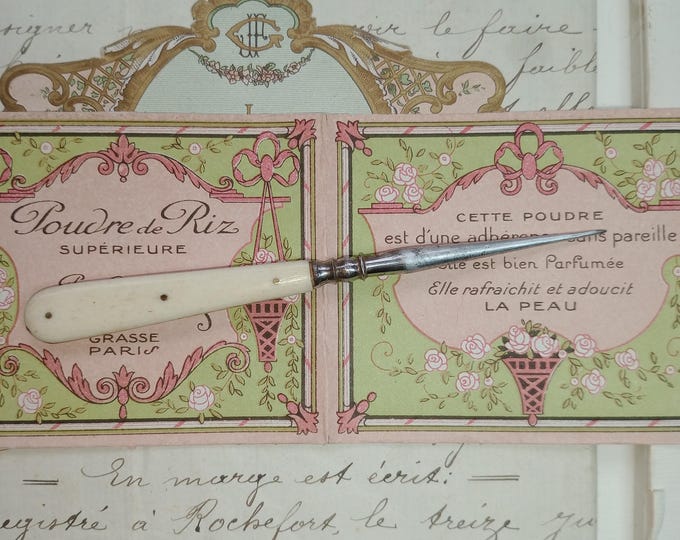 signer
voir le faire
faible
Poudre de Riz
SUPÉRIEURE
GRASSE
PARIS
CETTE POUDRE
est d'une adhérence sans pareille
Elle est bien Parfumée
Elle rafraichit et adoucit
LA PEAU
En marge est écrit:
registré à Rochefort, le treize